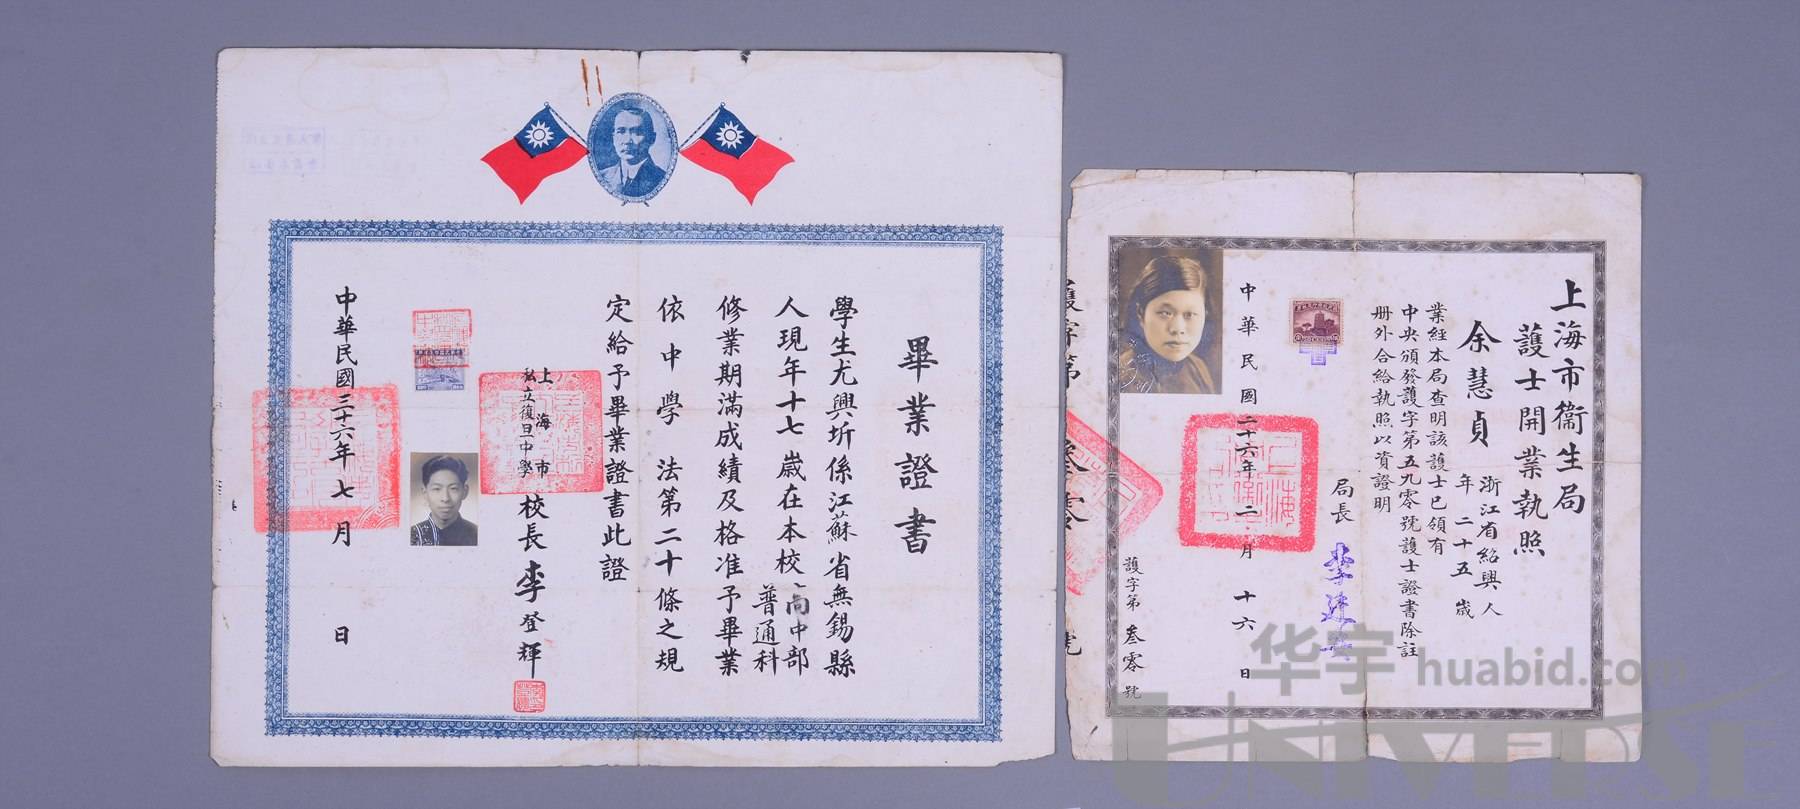 畢業證書
學生尤興圻係江蘇省無錫縣
人現年十七歲在本校高中部
普通科
修業期滿成績及格准予畢業
依中學法第二十條之規
定給予畢業證書此證
上海市
私立復旦中學
校長李登輝
中華民國三十六年七月 日
上海市衞生局
護士開業執照
余慧貞
浙江省紹興人
年二十五歲
業經本局查明該護士已領有
中央頒發護字第五九零號護士證書除註
册外合給執照以資證明
局長
中華民國二十六年二月十六日
護字第叁零號
護字第叁零號
华宇 huabid.com
UNIVERSE